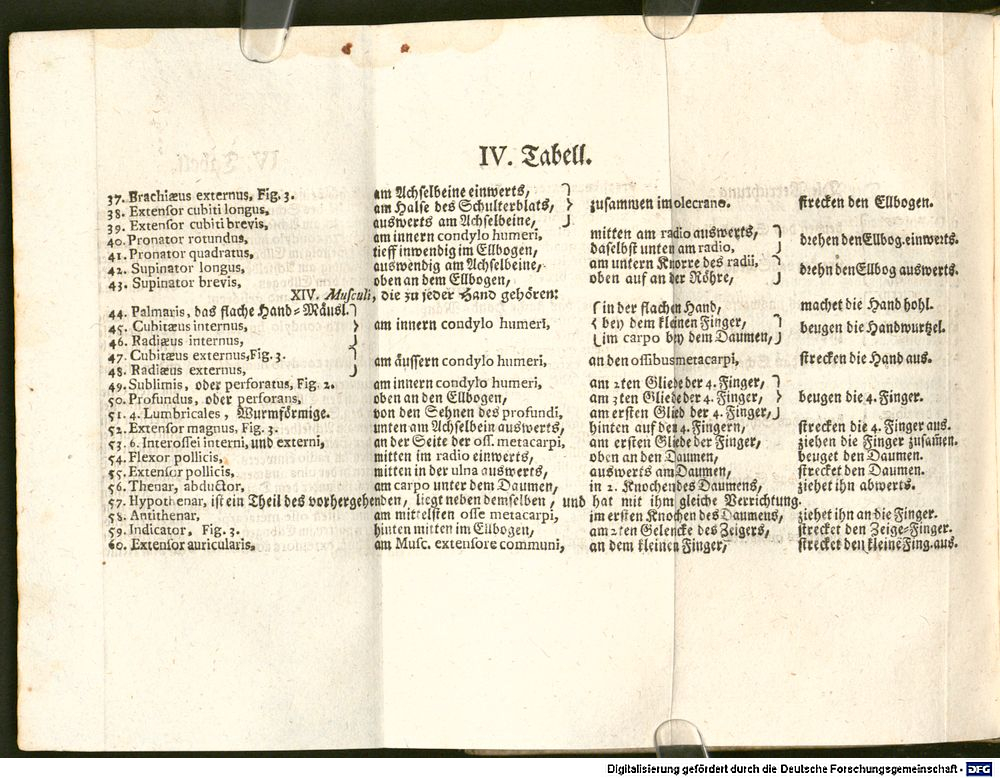 IV. Tabell.
37. Brachiæus externus, Fig. 3. am Achselbeine einwerts,
38. Extensor cubiti longus, am Halse des Schulterblats, } zusammen im olecrano. strecken den Ellbogen.
39. Extensor cubiti brevis, auswerts am Achselbeine,
40. Pronator rotundus, am innern condylo humeri, mitten am radio auswerts, } drehen den Ellbog. einwerts.
41. Pronator quadratus, tieff inwendig im Ellbogen, daselbst unten am radio,
42. Supinator longus, auswendig am Achselbeine, am untern Knorre des radii, } drehn den Ellbog auswerts.
43. Supinator brevis, oben an dem Ellbogen, oben auf an der Röhre,
XIV. Musculi, die zu jeder Hand gehören:
44. Palmaris, das flache Hand-Mäusl. { in der flachen Hand, machet die Hand hohl.
45. Cubitæus internus, } am innern condylo humeri, { bey dem kleinen Finger, } beugen die Handwurtzel.
46. Radiæus internus, { im carpo bey dem Daumen,
47. Cubitæus externus, Fig. 3. } am äussern condylo humeri, an den ossibus metacarpi, strecken die Hand aus.
48. Radiæus externus,
49. Sublimis, oder perforatus, Fig. 2. am innern condylo humeri, am 2ten Gliede der 4. Finger,
50. Profundus, oder perforans, oben an den Ellbogen, am 3ten Gliede der 4. Finger, } beugen die 4. Finger.
51. 4. Lumbricales, Wurmförmige. von den Sehnen des profundi, am ersten Glied der 4. Finger,
52. Extensor magnus, Fig. 3. unten am Achselbein auswerts, hinten auf der 4. Fingern, strecken die 4. Finger aus.
53. 6. Interossei interni, und externi, an der Seite der oss. metacarpi, am ersten Gliede der Finger, ziehen die Finger zusam̃en.
54. Flexor pollicis, mitten im radio einwerts, oben an den Daumen, beuget den Daumen.
55. Extensor pollicis, mitten in der ulna auswerts, auswerts am Daumen, strecket den Daumen.
56. Thenar, abductor, am carpo unter dem Daumen, in 2. Knochen des Daumens, ziehet ihn abwerts.
57. Hypothenar, ist ein Theil des vorhergehenden, liegt neben demselben, und hat mit ihm gleiche Verrichtung.
58. Antithenar, am mittelsten osse metacarpi, im ersten Knochen des Daumens, ziehet ihn an die Finger.
59. Indicator, Fig. 3. hinten mitten im Ellbogen, am 2ten Gelencke des Zeigers, strecket den Zeige-Finger.
60. Extensor auricularis, am Musc. extensore communi, an dem kleinen Finger, strecket den kleine Fing. aus.
Digitalisierung gefördert durch die Deutsche Forschungsgemeinschaft - DFG